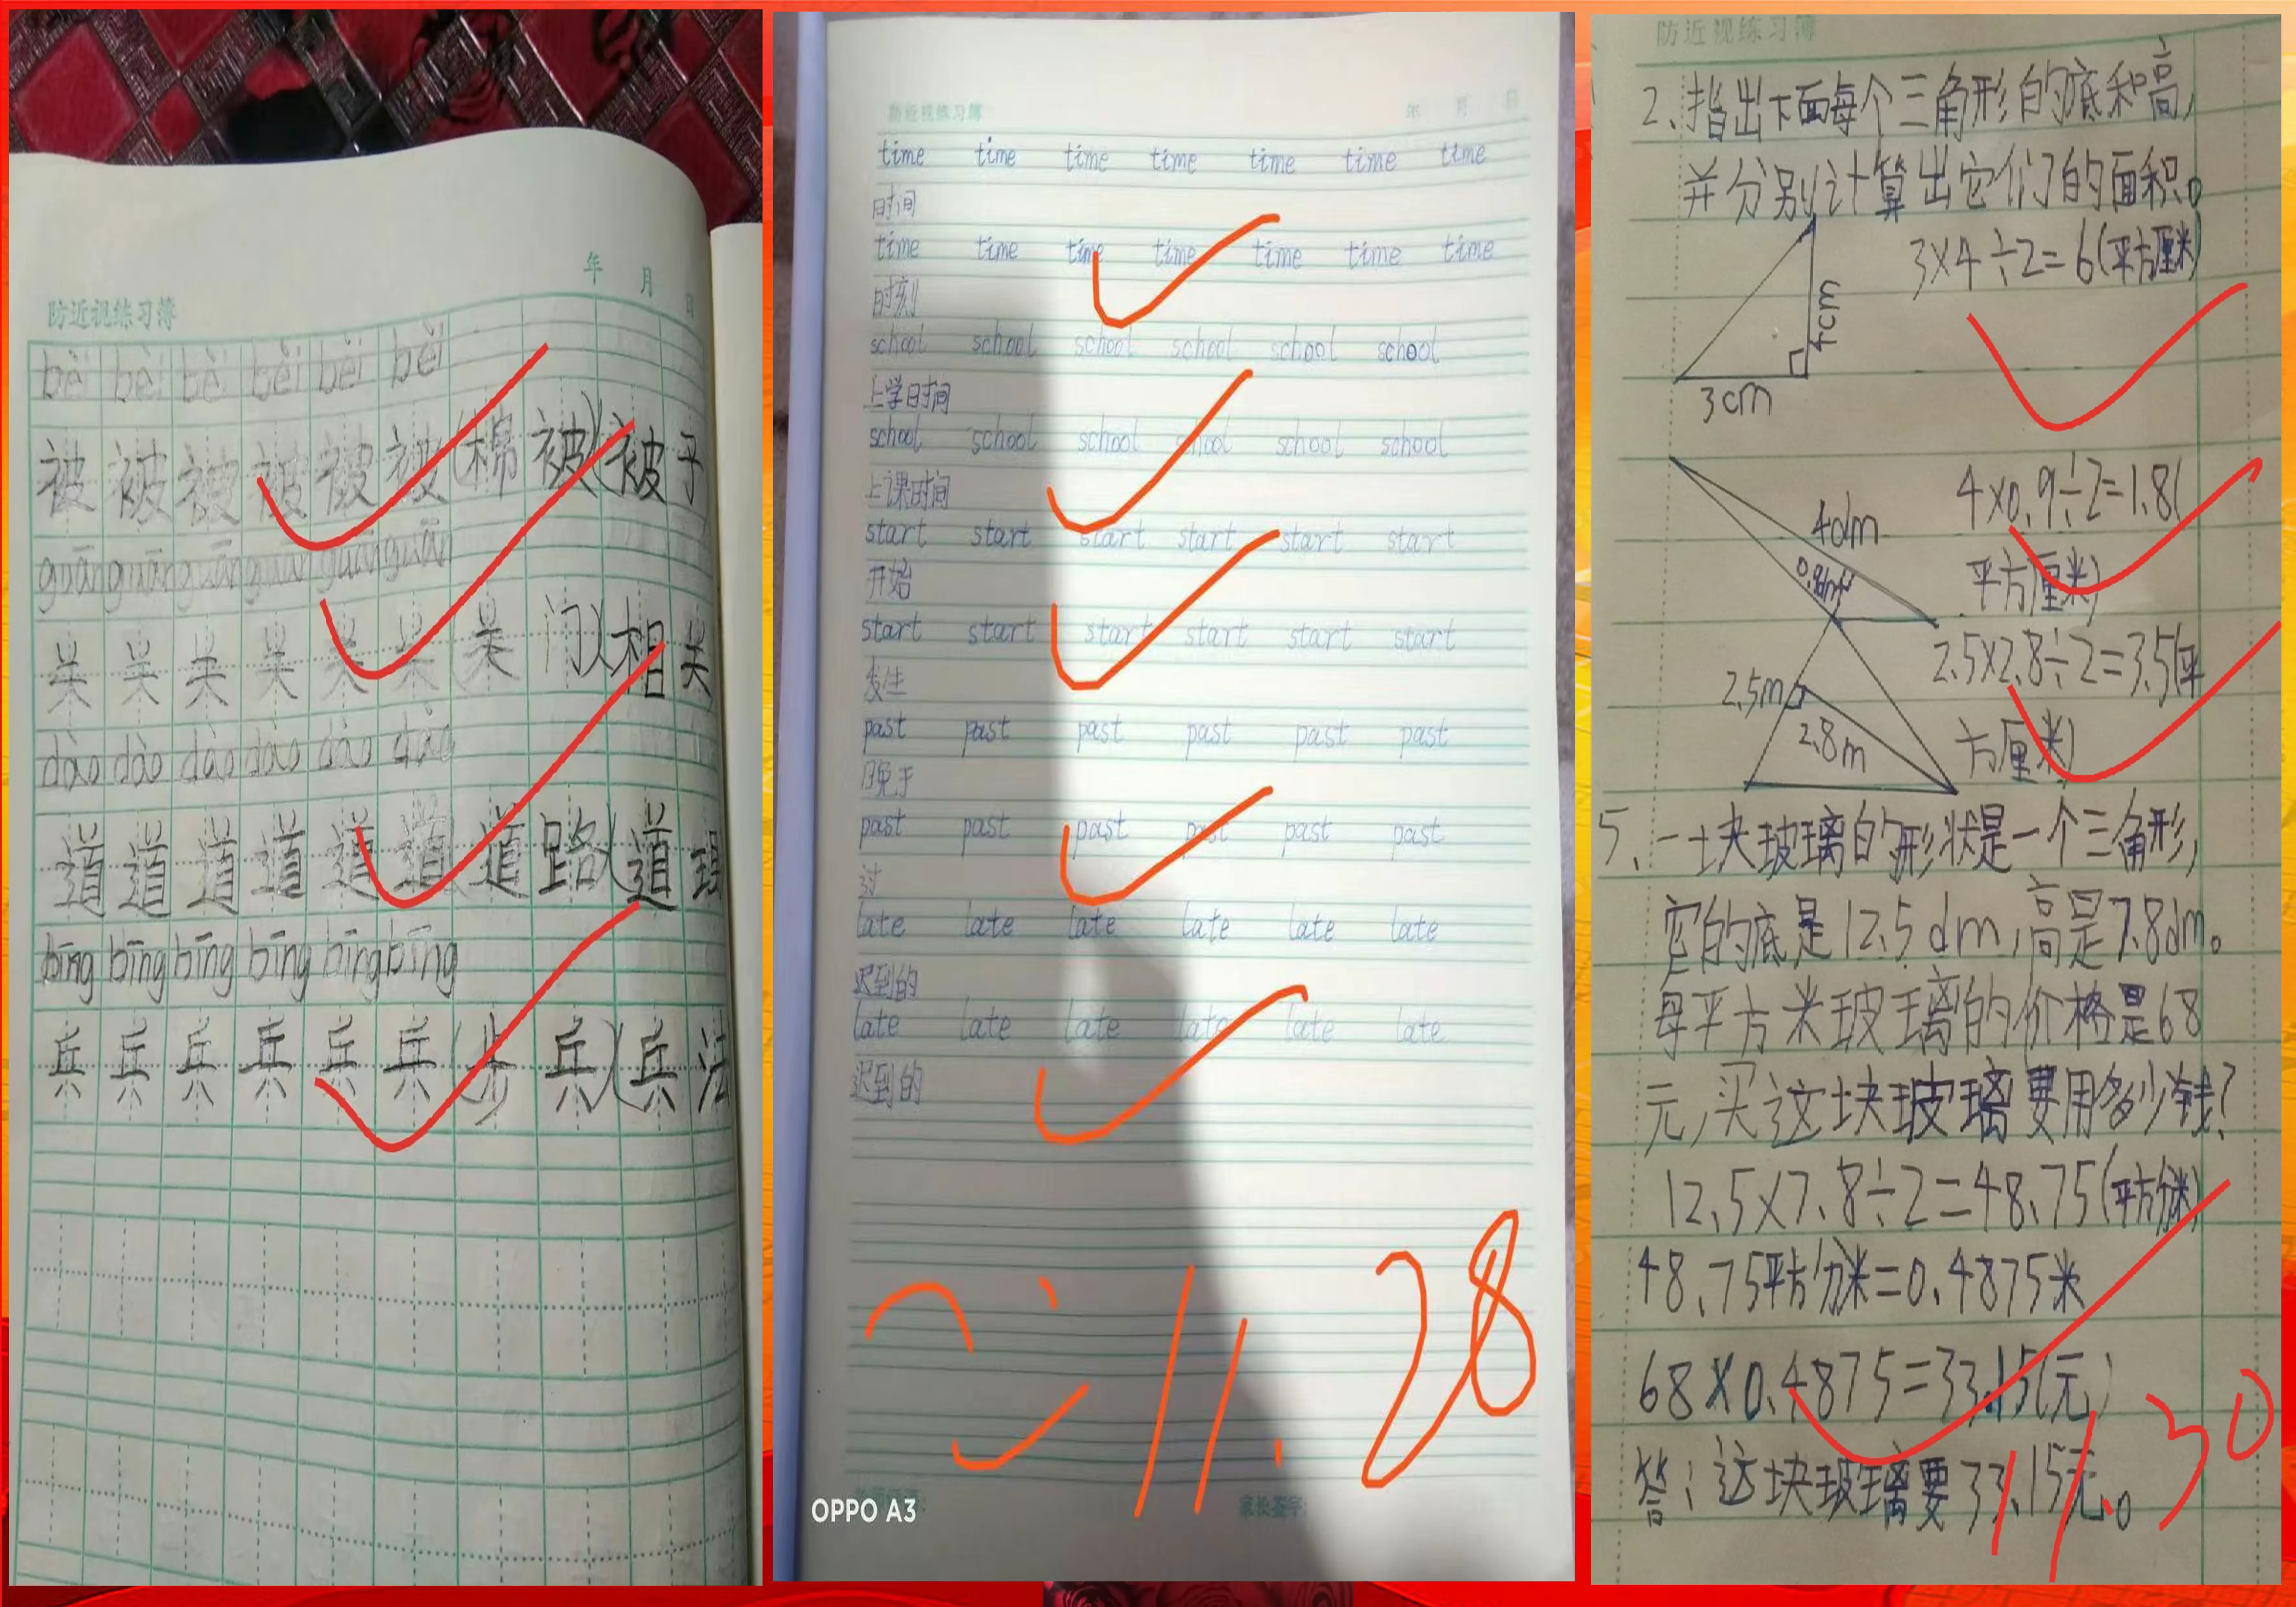 年 月 日
防近视练习簿
bèi bèi bèi bèi bèi bèi
被 被 被 被 被 被 (棉 被)(被 子
guān guān guān guān guān guān
关 关 关 关 关 关 (关 门)(相 关
dào dào dào dào dào dào
道 道 道 道 道 道 (道 路)(道
bīng bīng bīng bīng bīng bīng
兵 兵 兵 兵 兵 兵 (步 兵)(兵 法
防近视练习簿 年 月 日
time time time time time time time
时间
time time time time time time time
时刻
school school school school school school
上学时间
school school school school school school
上课时间
start start start start start start
开始
start start start start start start
发生
past past past past past past
晚于
past past past past past past
过
late late late late late late
迟到的
late late late late late late
迟到的
11.28
家长签字:
OPPO A3
防近视练习簿
2、指出下面每个三角形的底和高,
并分别计算出它们的面积。
3×4÷2=6(平方厘米)
4cm
3cm
4×0.9÷2=1.8(
平方厘米)
4dm
0.9dm
2.5×2.8÷2=3.5(平
方厘米)
2.5m
2.8m
5、一块玻璃的形状是一个三角形,
它的底是12.5dm,高是7.8dm。
每平方米玻璃的价格是68
元,买这块玻璃要用多少钱?
12.5×7.8÷2=48.75(平方分米)
48.75平方分米=0.4875米
68×0.4875=33.15(元)
答:这块玻璃要33.15元。
11.30